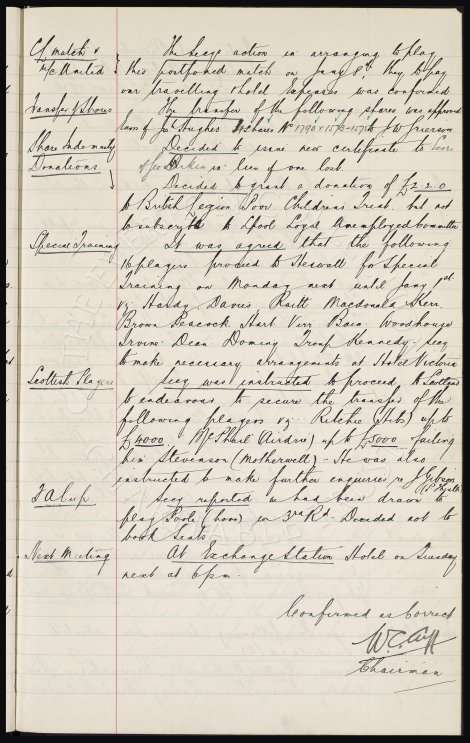 Cf match v The Secys action in arranging to play
M/c United this postponed match on Jany 8th they to pay
our travelling & hotel expenses was confirmed
Transfer of Shares The transfer of the following shares was approved
Exors of Jos Hughes 3 shares No 1790 1513-1515 to J W Grierson
Share Indemnity Decided to issue new certificate to Exor
of Jos Eakin in lieu of one lost.
Donations Decided to grant a donation of £2.2.0
to British Legion Poor Childrens Treat but not
to subscribe to Lpool Loyal Unemployed Committee
Special Training It was agreed that the following
16 players proceed to Heswall for Special
Training on Monday next until Jany 1st
vz. Hardy Davies Raitt Macdonald Kerr
Brown Peacock Hart Virr Bain Woodhouse
Irvine Dean Dominy Troup Kennedy. Secy
to make necessary arrangements at Hotel Victoria
Scottish Players Secy was instructed to proceed to Scotland
to endeavour to secure the transfer of the
following players vz. Ritchie (Hibs) up to
£4000 McPhail (Airdrie) up to £5000 failing
him Stevenson (Motherwell) - He was also
instructed to make further enquiries re J Gibson
(P. Thistle)
F A Cup Secy reported we had been drawn to
play Poole (home) in 3rd Rd. Decided not to
book seats.
Next Meeting At Exchange Station Hotel on Tuesday
next at 6pm.
Confirmed as Correct
W.C. Cuff
Chairman